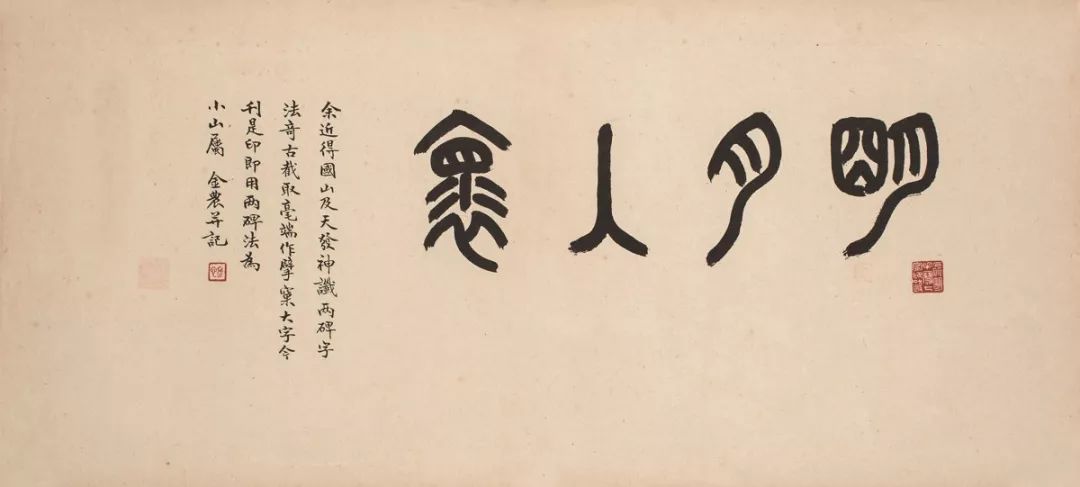 朙月入褱
余近得國山及天發神讖兩碑字
法奇古截取毫端作擘窠大字今
刊是印即用兩碑法為
小山屬 金農并記